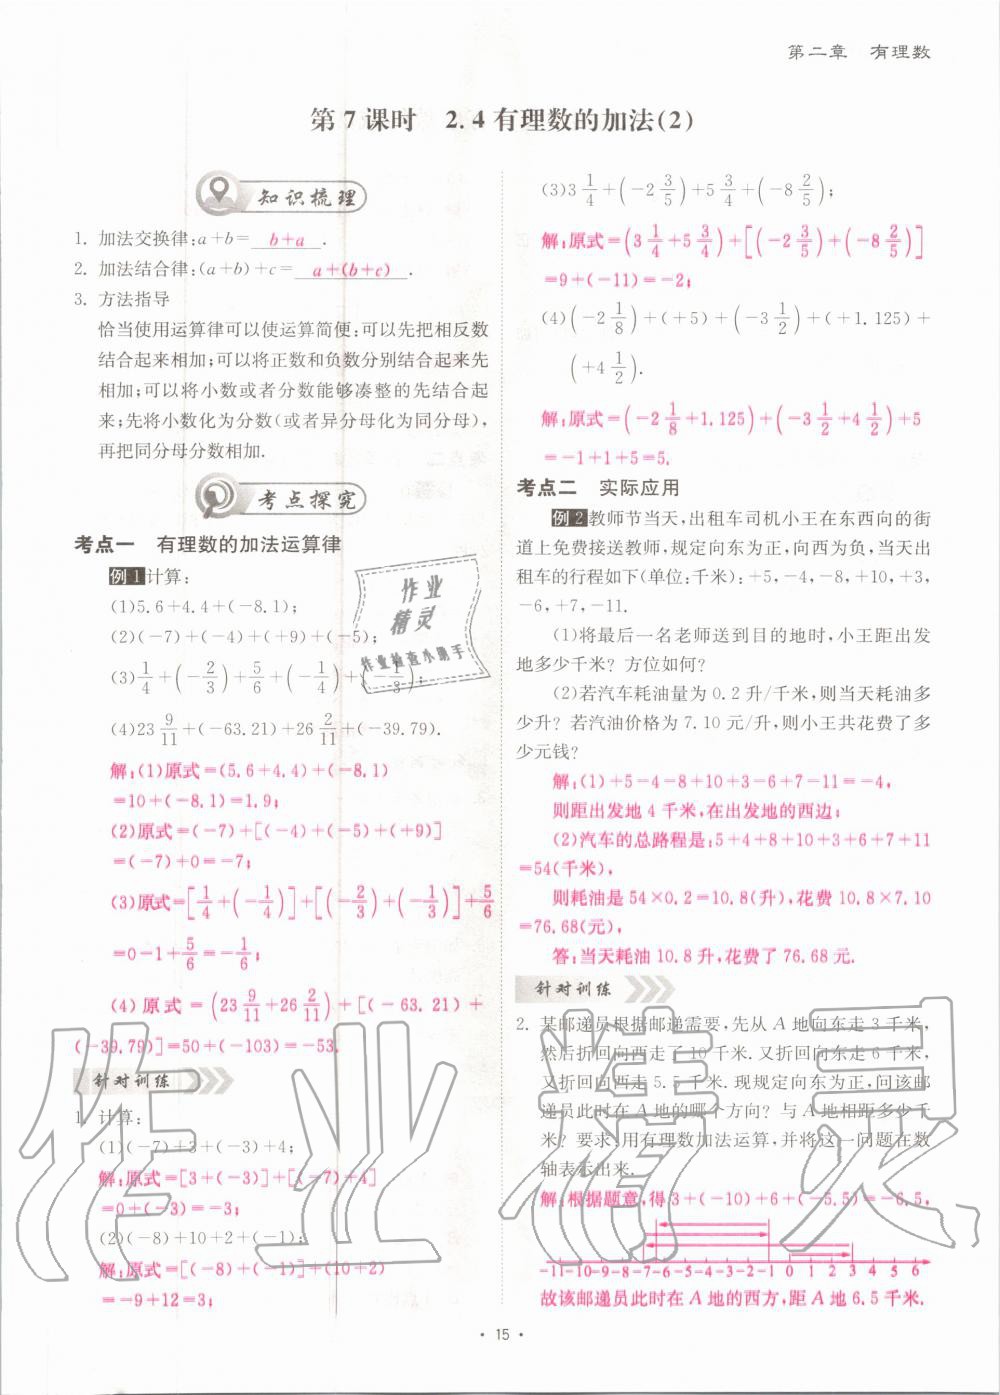 第二章　有理数
第 7 课时　2.4 有理数的加法(2)
知识梳理
1. 加法交换律:a+b= b+a .
2. 加法结合律:(a+b)+c= a+(b+c) .
3. 方法指导
恰当使用运算律可以使运算简便:可以先把相反数
结合起来相加;可以将正数和负数分别结合起来先
相加;可以将小数或者分数能够凑整的先结合起
来;先将小数化为分数(或者异分母化为同分母),
再把同分母分数相加.
考点探究
考点一　有理数的加法运算律
例 1 计算:
(1)5.6+4.4+(-8.1);
(2)(-7)+(-4)+(+9)+(-5);
(3)1/4+(-2/3)+5/6+(-1/4)+(-1/3);
(4)23 9/11+(-63.21)+26 2/11+(-39.79).
解:(1)原式=(5.6+4.4)+(-8.1)
=10+(-8.1)=1.9;
(2)原式=(-7)+[(-4)+(-5)+(+9)]
=(-7)+0=-7;
(3)原式=[1/4+(-1/4)]+[(-2/3)+(-1/3)]+5/6
=0-1+5/6=-1/6;
(4)原式=(23 9/11+26 2/11)+[(-63.21)+
(-39.79)]=50+(-103)=-53.
针对训练
1. 计算:
(1)(-7)+3+(-3)+4;
解:原式=[3+(-3)]+[(-7)+4]
=0+(-3)=-3;
(2)(-8)+10+2+(-1);
解:原式=[(-8)+(-1)]+(10+2)
=-9+12=3;
(3)3 1/4+(-2 3/5)+5 3/4+(-8 2/5);
解:原式=(3 1/4+5 3/4)+[(-2 3/5)+(-8 2/5)]
=9+(-11)=-2;
(4)(-2 1/8)+(+5)+(-3 1/2)+(+1.125)+
(+4 1/2).
解:原式=(-2 1/8+1.125)+(-3 1/2+4 1/2)+5
=-1+1+5=5.
考点二　实际应用
例 2 教师节当天,出租车司机小王在东西向的街
道上免费接送教师,规定向东为正,向西为负,当天出
租车的行程如下(单位:千米):+5,-4,-8,+10,+3,
-6,+7,-11.
(1)将最后一名老师送到目的地时,小王距出发
地多少千米? 方位如何?
(2)若汽车耗油量为 0.2 升/千米,则当天耗油多
少升? 若汽油价格为 7.10 元/升,则小王共花费了多
少元钱?
解:(1)+5-4-8+10+3-6+7-11=-4,
则距出发地 4 千米,在出发地的西边;
(2)汽车的总路程是:5+4+8+10+3+6+7+11
=54(千米),
则耗油是 54×0.2=10.8(升),花费 10.8×7.10
=76.68(元),
答:当天耗油 10.8 升,花费了 76.68 元.
针对训练
2. 某邮递员根据邮递需要,先从 A 地向东走 3 千米,
然后折回向西走了 10 千米. 又折回向东走 6 千米,
又折回向西走 5.5 千米. 现规定向东为正,问该邮
递员此时在 A 地的哪个方向? 与 A 地相距多少千
米? 要求:用有理数加法运算,并将这一问题在数
轴表示出来.
解:根据题意,得 3+(-10)+6+(-5.5)=-6.5,
-11-10-9-8-7-6-5-4-3-2-1 0 1 2 3 4 5 6
故该邮递员此时在 A 地的西方,距 A 地 6.5 千米.
· 15 ·
作业
精灵
作业检查小助手
作业精灵